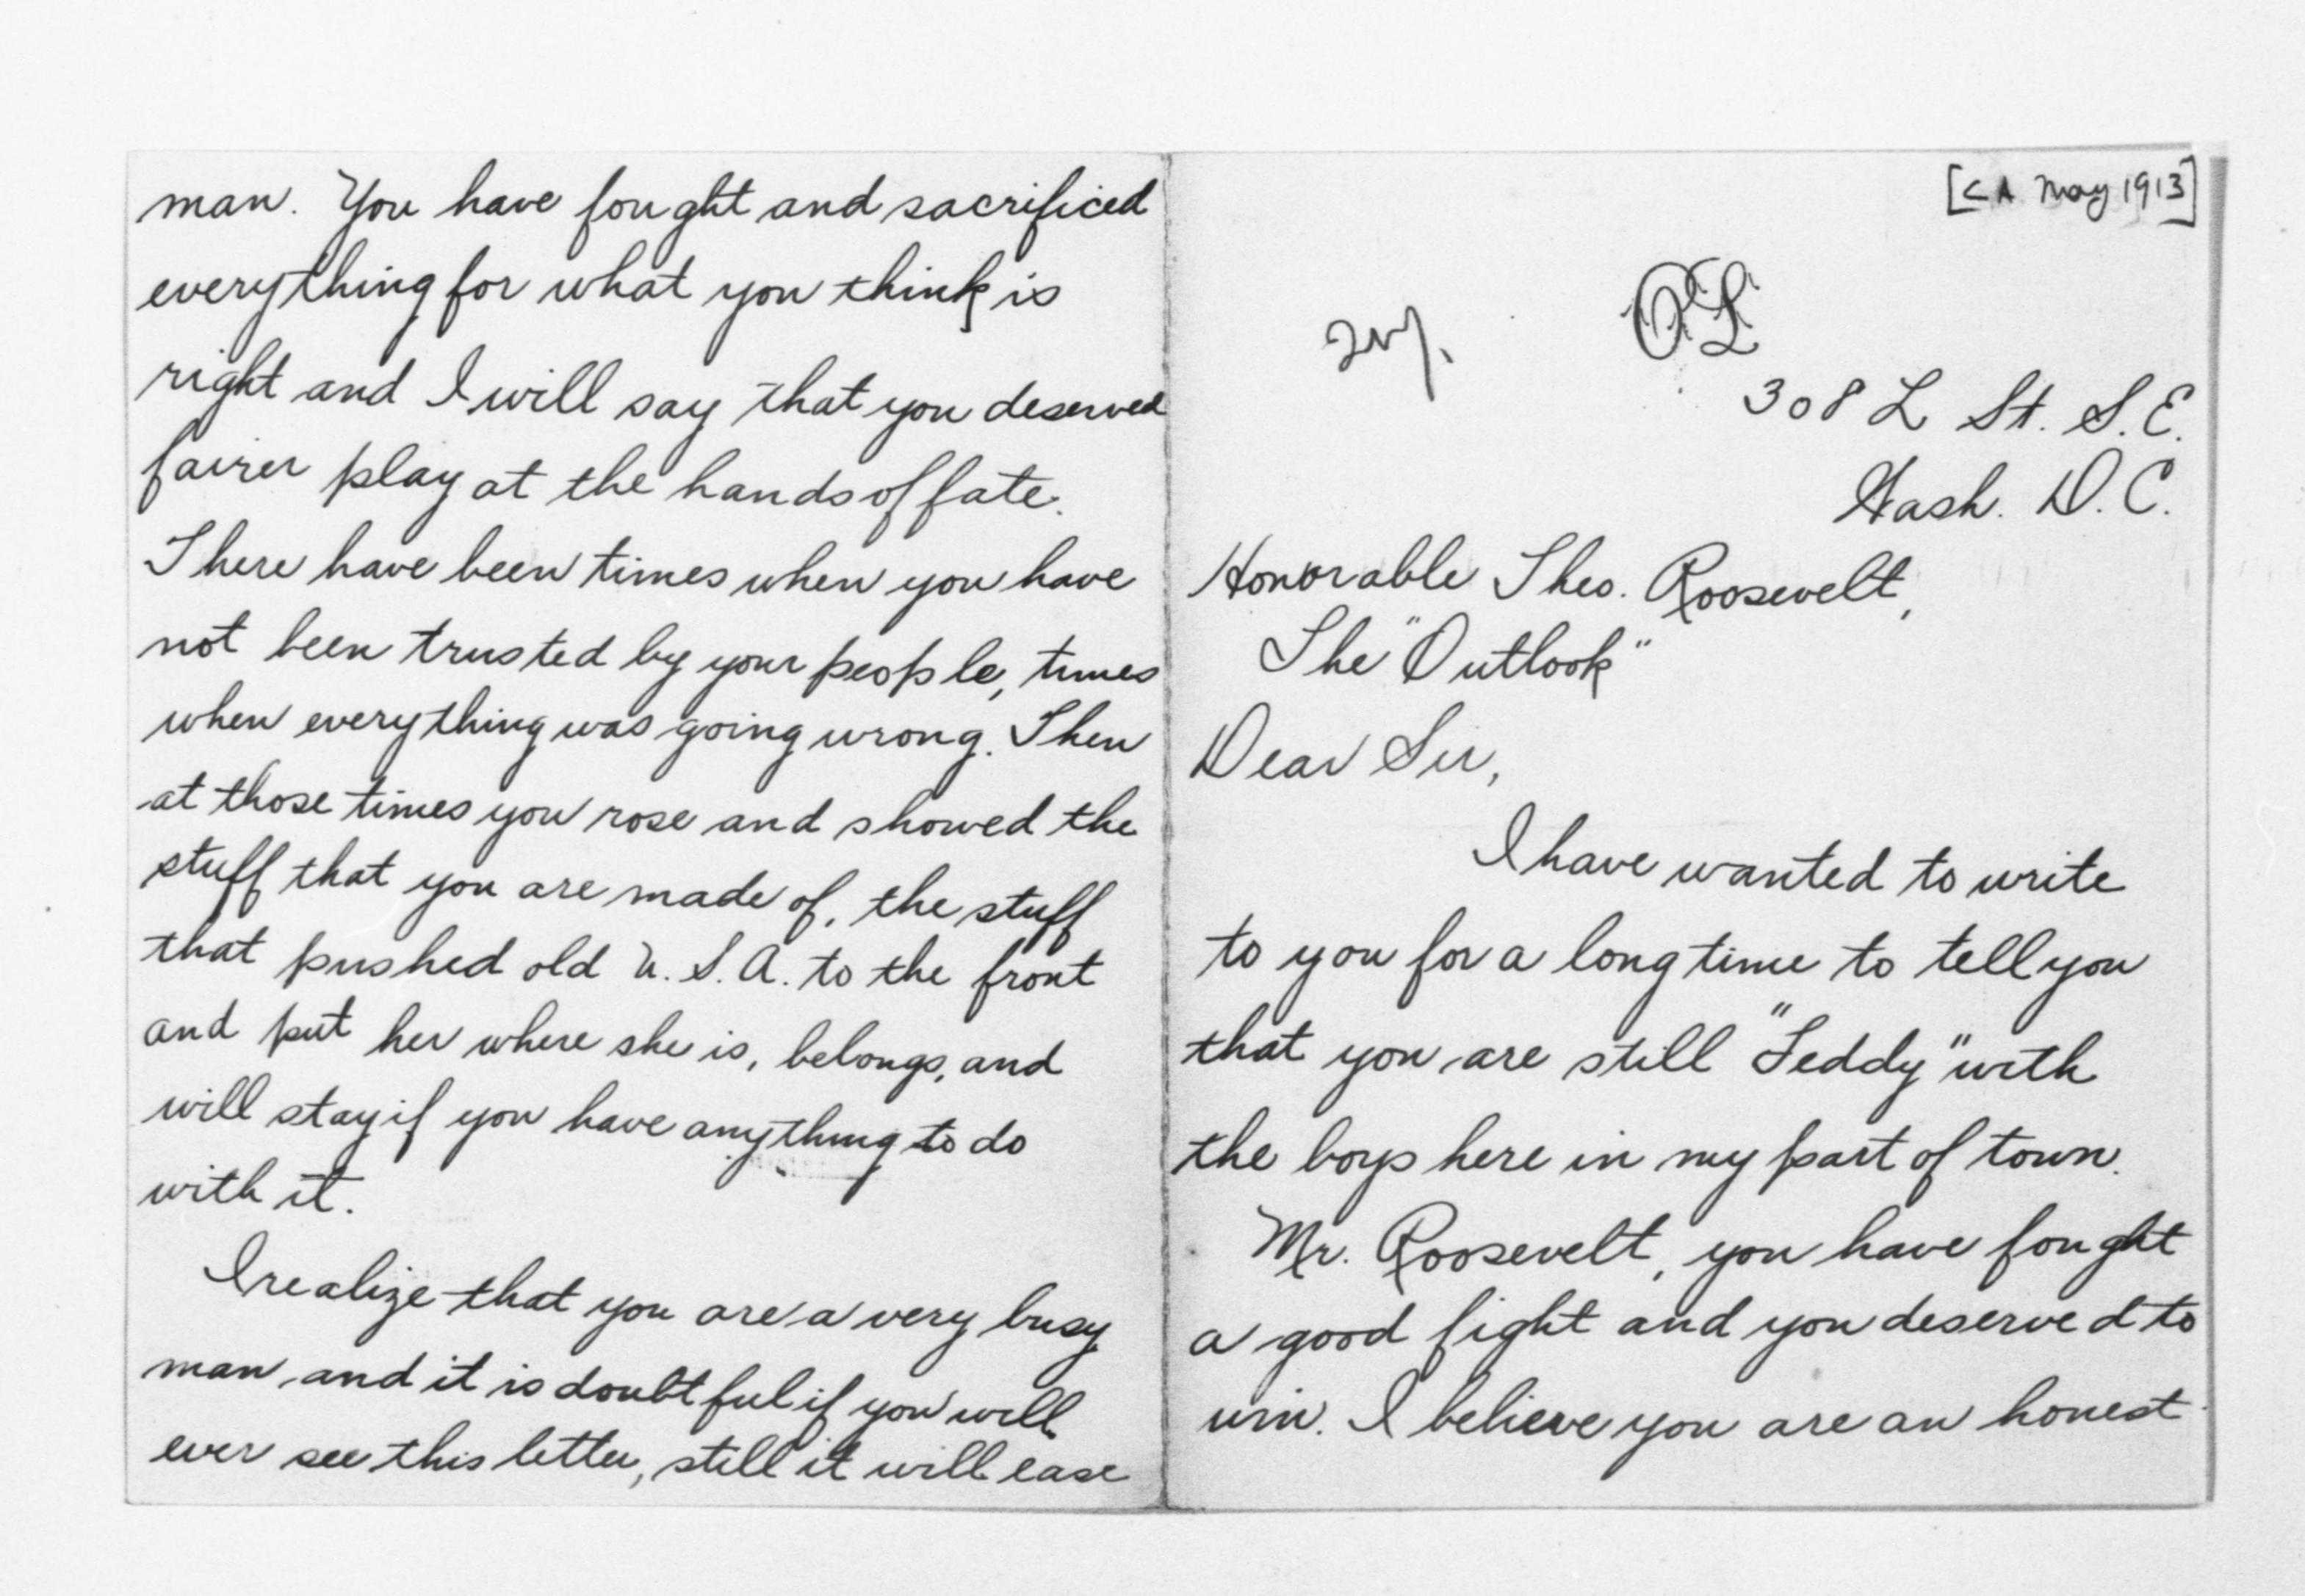 [CA May 1913]
308 L St. S.E.
Wash. D.C.
Honorable Theo. Roosevelt,
The "Outlook"
Dear Sir,
I have wanted to write
to you for a long time to tell you
that you are still "Teddy" with
the boys here in my part of town.
Mr. Roosevelt, you have fought
a good fight and you deserved to
win. I believe you are an honest
man. You have fought and sacrificed
everything for what you think is
right and I will say that you deserved
fairer play at the hands of fate.
There have been times when you have
not been trusted by your people, times
when everything was going wrong. Then
at those times you rose and showed the
stuff that you are made of, the stuff
that pushed old U.S.A. to the front
and put her where she is, belongs, and
will stay if you have anything to do
with it.
I realize that you are a very busy
man and it is doubtful if you will
ever see this letter, still it will ease